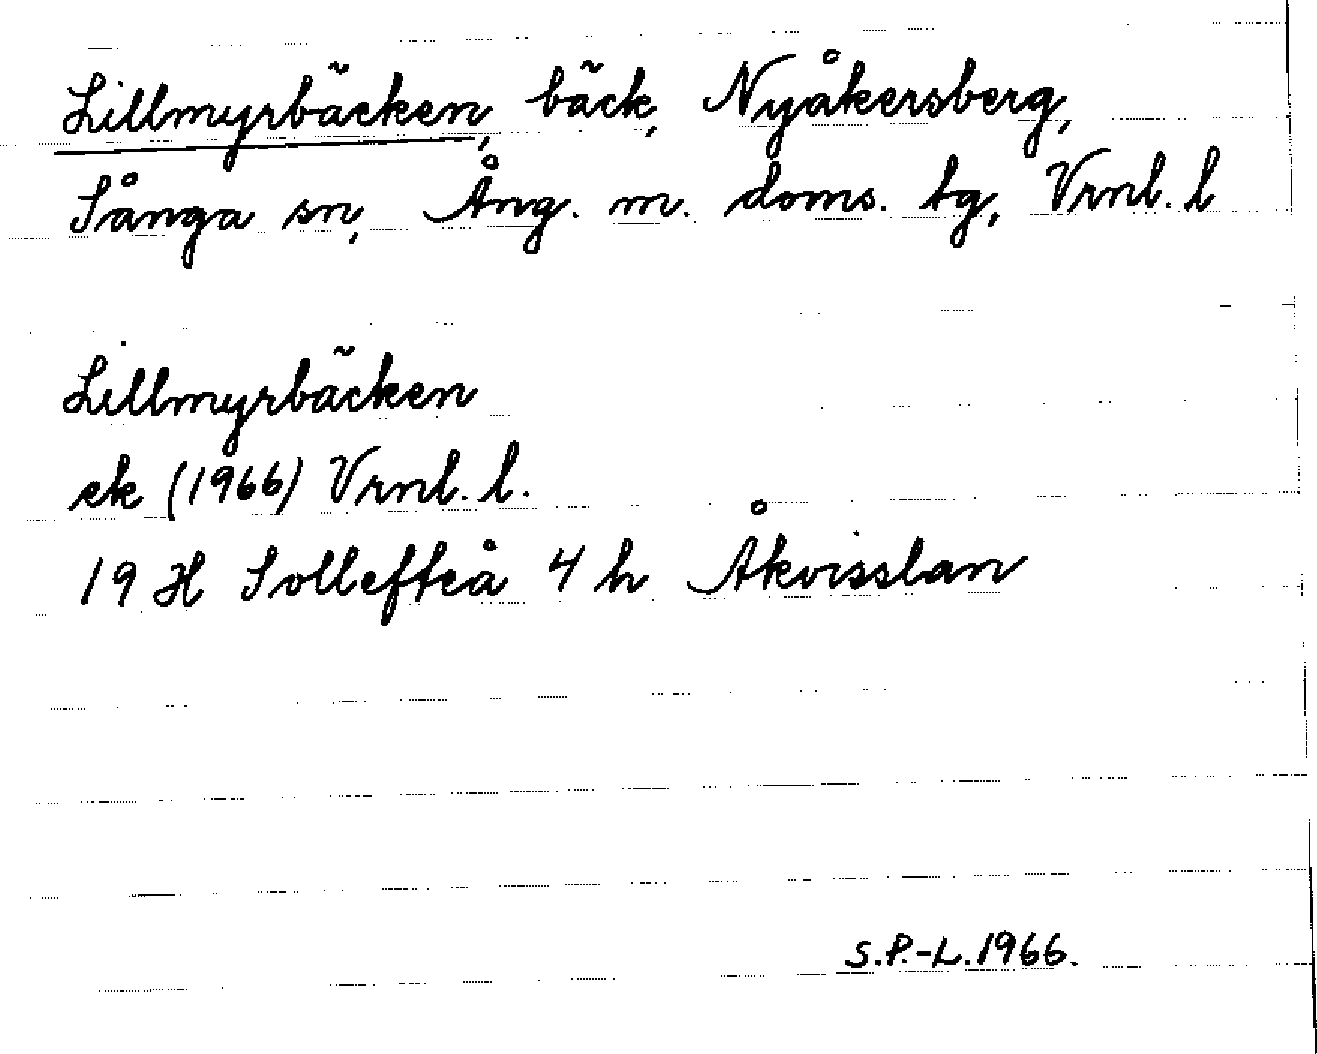 Lillmyrbäcken, bäck, Nyåkersberg,
Sånga sn, Ång. m. doms. tg, Vrnl. l
Lillmyrbäcken
ek (1966) Vrnl. l.
19 H Sollefteå 4 h Åkvisslan
S.P.-L. 1966.